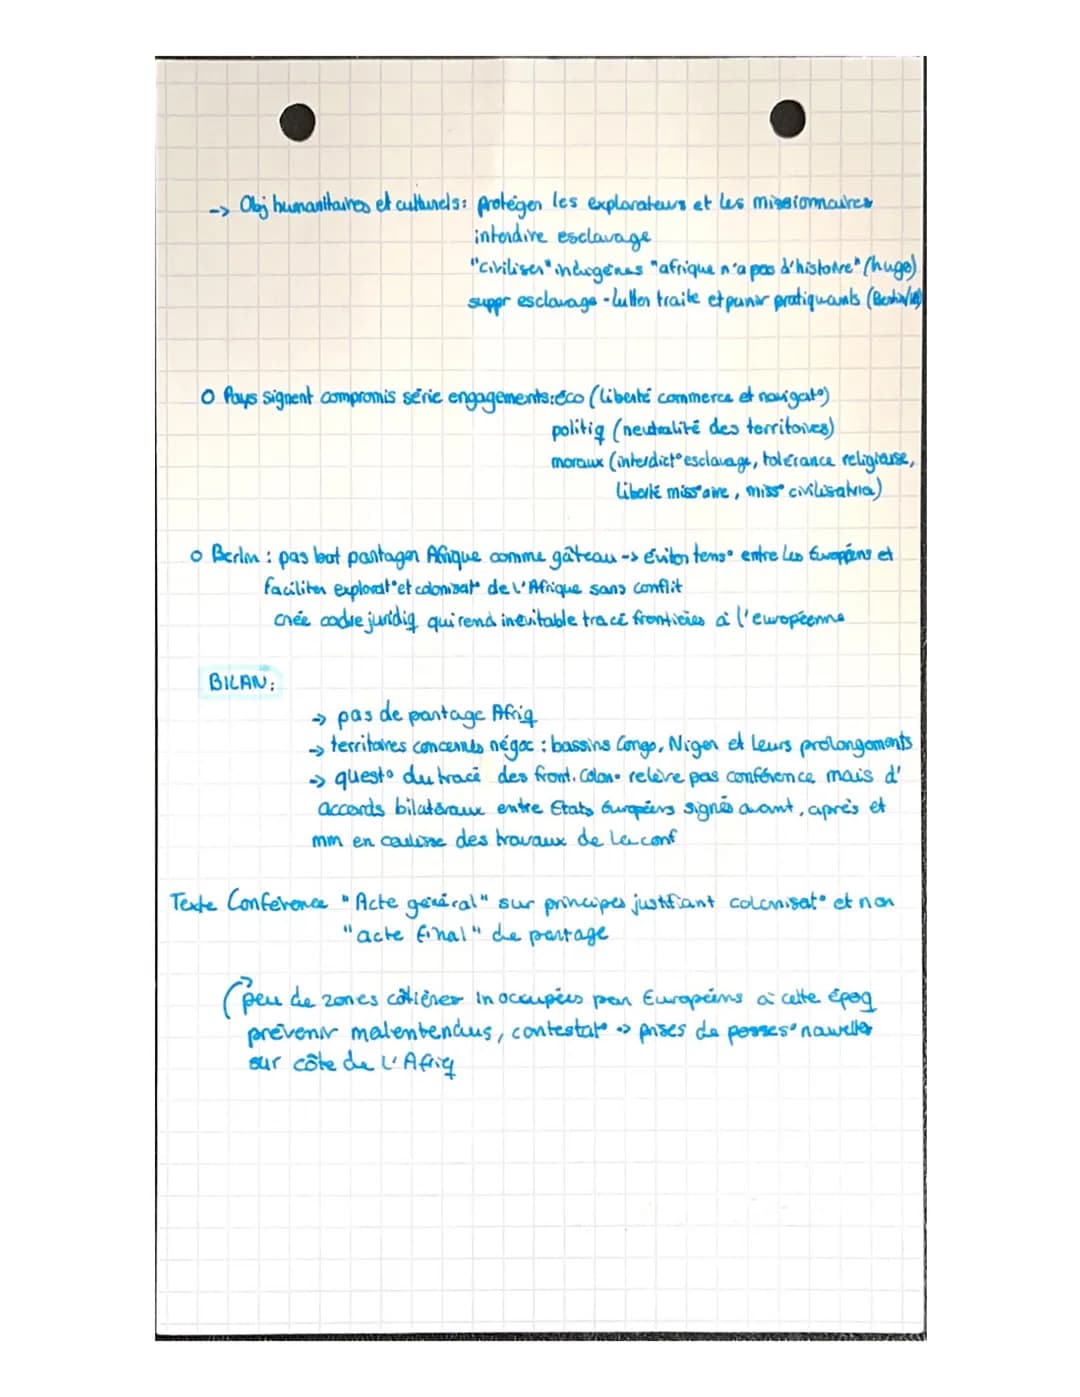 -> Obj humanitaires et culturels: protéger les explorateurs et les missionnaires
interdire esclavage
"civiliser" indigènes "afrique n'a pas d'histoire" (hugo)
suppr esclavage - lutter traite et punir pratiquants
o Pays signent compromis série engagements: éco (liberté commerce et navigat°)
politiq (neutralité des territoires)
moraux (interdict° esclavage, tolérance religieuse,
liberté miss°aire, miss° civilisatria)
o Berlin : pas but partager Afrique comme gâteau -> éviter tens° entre les Européens et
faciliter explorat° et colonisat° de l'Afrique sans conflit
crée cadre juridiq qui rend inévitable tracé frontières à l'européenne
BILAN:
-> pas de partage Afriq
-> territoires concernés négoc : bassins Congo, Niger et leurs prolongements
-> quest° du tracé des front. colon. relève pas conférence mais d'
accords bilatéraux entre Etats Européens signés avant, après et
mm en coulisse des travaux de la conf
Texte Conférence "Acte général" sur principes justifiant colonisat° et non
"acte final" de partage
(peu de zones côtières inoccupées par Européens à cette époq
prévenir malentendus, contestat° -> prises de possess° nouvelles
sur côte de L'Afriq